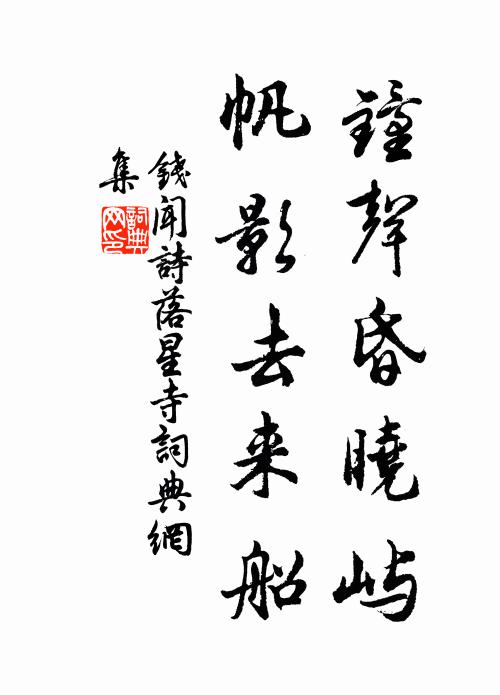 鐘聲昏曉屿
帆影去来船
錢聞詩落星寺詞典網
集
詞典网印